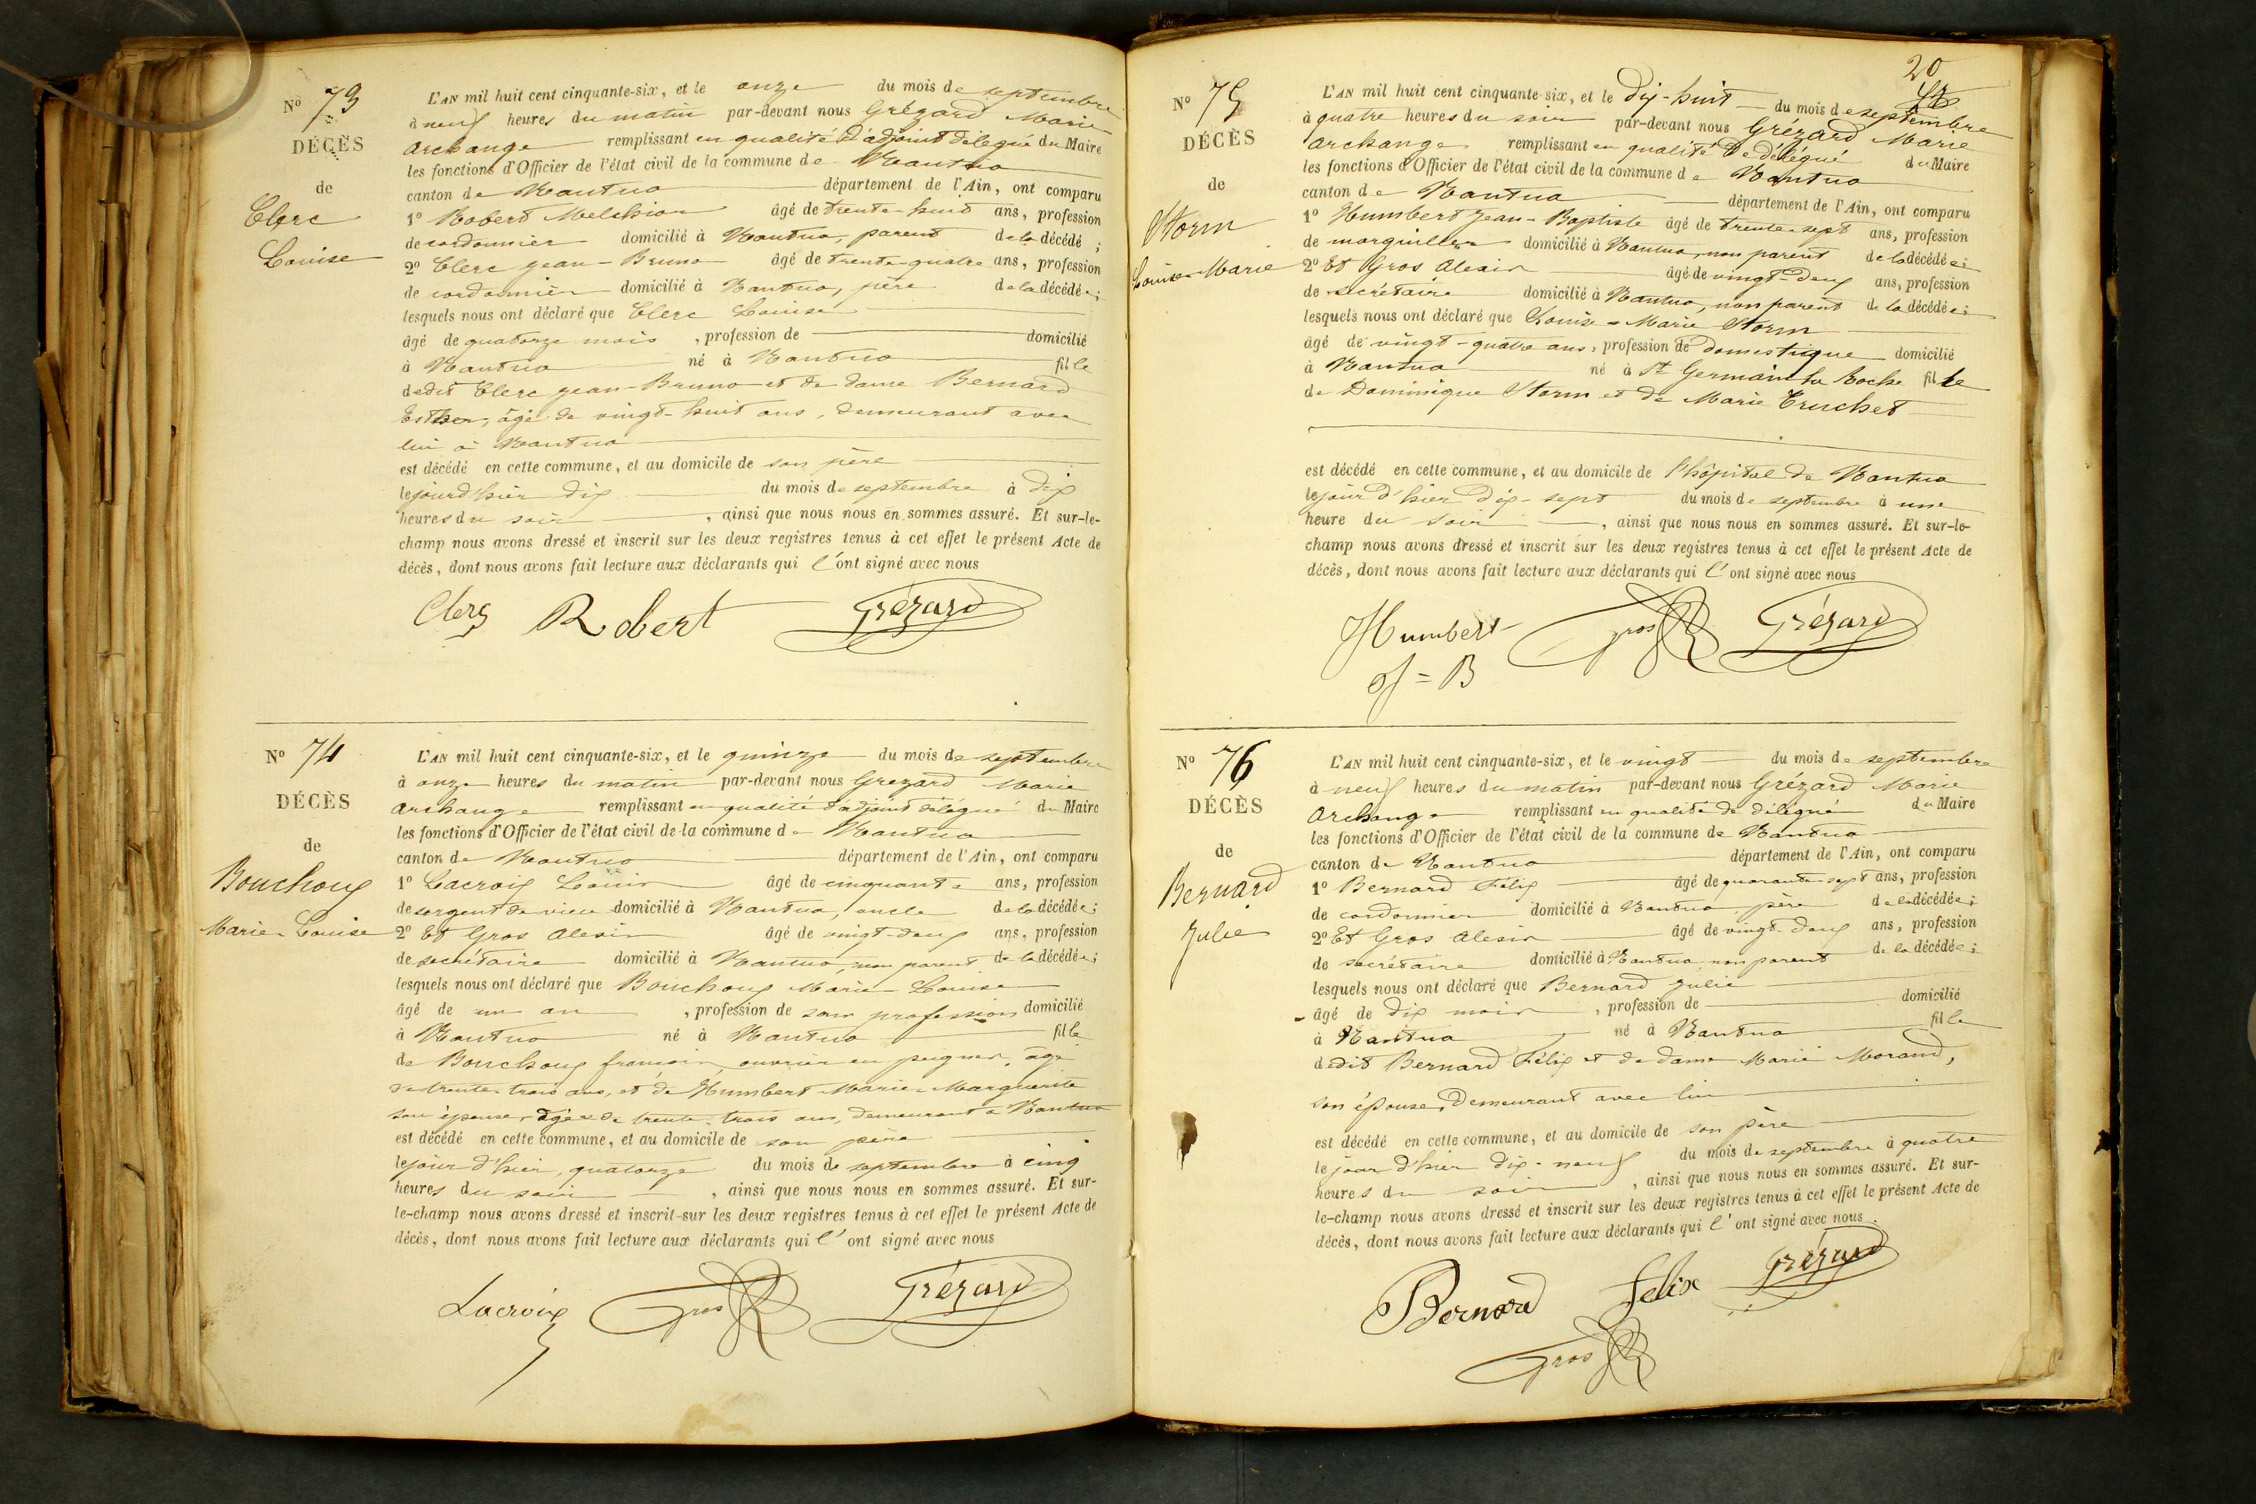 N° 73
DÉCÈS
de
Clerc
Louise
L'AN mil huit cent cinquante-six, et le onze du mois de septembre
à neuf heures du matin par-devant nous Grézard Marie
Archange remplissant en qualité d'adjoint délégué du Maire
les fonctions d'Officier de l'état civil de la commune de Nantua
canton de Nantua département de l'Ain, ont comparu
1° Robert Melchior âgé de trente-huit ans, profession
de cordonnier domicilié à Nantua, parent de la décédé ;
2° Clerc jean-Bruno âgé de trente-quatre ans, profession
de cordonnier domicilié à Nantua, père de la décédée ;
lesquels nous ont déclaré que Clerc Louise
âgé de quatorze mois , profession de domicilié
à Nantua né à Nantua fille
dedit Clerc jean-Bruno et de dame Bernard
Esther, âgé de vingt-huit ans, demeurant avec
lui à Nantua
est décédé en cette commune, et au domicile de son père
le jourd'hier dix du mois de septembre à dix
heures du soir , ainsi que nous nous en sommes assuré. Et sur-le-
champ nous avons dressé et inscrit sur les deux registres tenus à cet effet le présent Acte de
décès, dont nous avons fait lecture aux déclarants qui l'ont signé avec nous
Clerc Robert Grézard
N° 74
DÉCÈS
de
Bouchoux
Marie-Louise
L'AN mil huit cent cinquante-six, et le quinze du mois de septembre
à onze heures du matin par-devant nous Grezard Marie
Archange remplissant en qualité d'adjoint délégué du Maire
les fonctions d'Officier de l'état civil de la commune de Nantua
canton de Nantua département de l'Ain, ont comparu
1° Lacroix Louis âgé de cinquante ans, profession
de sergent de ville domicilié à Nantua, oncle de la décédée ;
2° Et Gros Alexis âgé de vingt-deux ans, profession
de secrétaire domicilié à Nantua, non parent de la décédée ;
lesquels nous ont déclaré que Bouchoux Marie-Louise
âgé de un an , profession de sans profession domicilié
à Nantua né à Nantua fille
de Bouchoux françois, ouvrier en peignes, âgé
de trente-trois ans, et de Humbert Marie-Marguerite
son épouse, âgée de trente-trois ans, demeurant à Nantua
est décédé en cette commune, et au domicile de son père
le jour d'hier, quatorze du mois de septembre à cinq
heures du soir , ainsi que nous nous en sommes assuré. Et sur-
le-champ nous avons dressé et inscrit sur les deux registres tenus à cet effet le présent Acte de
décès, dont nous avons fait lecture aux déclarants qui l'ont signé avec nous
Lacroix Gros Grézard
20
N° 75
DÉCÈS
de
Storm
Louise-Marie
L'AN mil huit cent cinquante-six, et le dix-huit du mois de septembre
à quatre heures du soir par-devant nous Grézard Marie
Archange remplissant en qualité de délégué du Maire
les fonctions d'Officier de l'état civil de la commune de Nantua
canton de Nantua département de l'Ain, ont comparu
1° Humbert Jean-Baptiste âgé de trente-sept ans, profession
de marguiller domicilié à Nantua, non parent de la décédée ;
2° Et Gros Alexis âgé de vingt-deux ans, profession
de secrétaire domicilié à Nantua, non parent de la décédée ;
lesquels nous ont déclaré que Louise-Marie Storm
âgé de vingt-quatre ans, profession de domestique domicilié
à Nantua né à St Germain la Roche fille
de Dominique Storm et de Marie Truchet
est décédé en cette commune, et au domicile de l'hôpital de Nantua
le jour d'hier dix-sept du mois de septembre à une
heure du soir , ainsi que nous nous en sommes assuré. Et sur-le-
champ nous avons dressé et inscrit sur les deux registres tenus à cet effet le présent Acte de
décès, dont nous avons fait lecture aux déclarants qui l'ont signé avec nous
Humbert Gros Grézard
J=B
N° 76
DÉCÈS
de
Bernard
Julie
L'AN mil huit cent cinquante-six, et le vingt du mois de septembre
à neuf heures du matin par-devant nous Grézard Marie
Archange remplissant en qualité de délégué du Maire
les fonctions d'Officier de l'état civil de la commune de Nantua
canton de Nantua département de l'Ain, ont comparu
1° Bernard Félix âgé de quarante-sept ans, profession
de cordonnier domicilié à Nantua père de la décédée ;
2° Et Gros Alexis âgé de vingt-deux ans, profession
de secrétaire domicilié à Nantua, non parent de la décédée ;
lesquels nous ont déclaré que Bernard Julie
âgé de dix mois , profession de domicilié
à Nantua né à Nantua fille
dedit Bernard Félix et de dame Marie Morand,
son épouse, demeurant avec lui
est décédé en cette commune, et au domicile de son père
le jour d'hier dix-neuf du mois de septembre à quatre
heures du soir , ainsi que nous nous en sommes assuré. Et sur-
le-champ nous avons dressé et inscrit sur les deux registres tenus à cet effet le présent Acte de
décès, dont nous avons fait lecture aux déclarants qui l'ont signé avec nous
Bernard felix Grézard
Gros